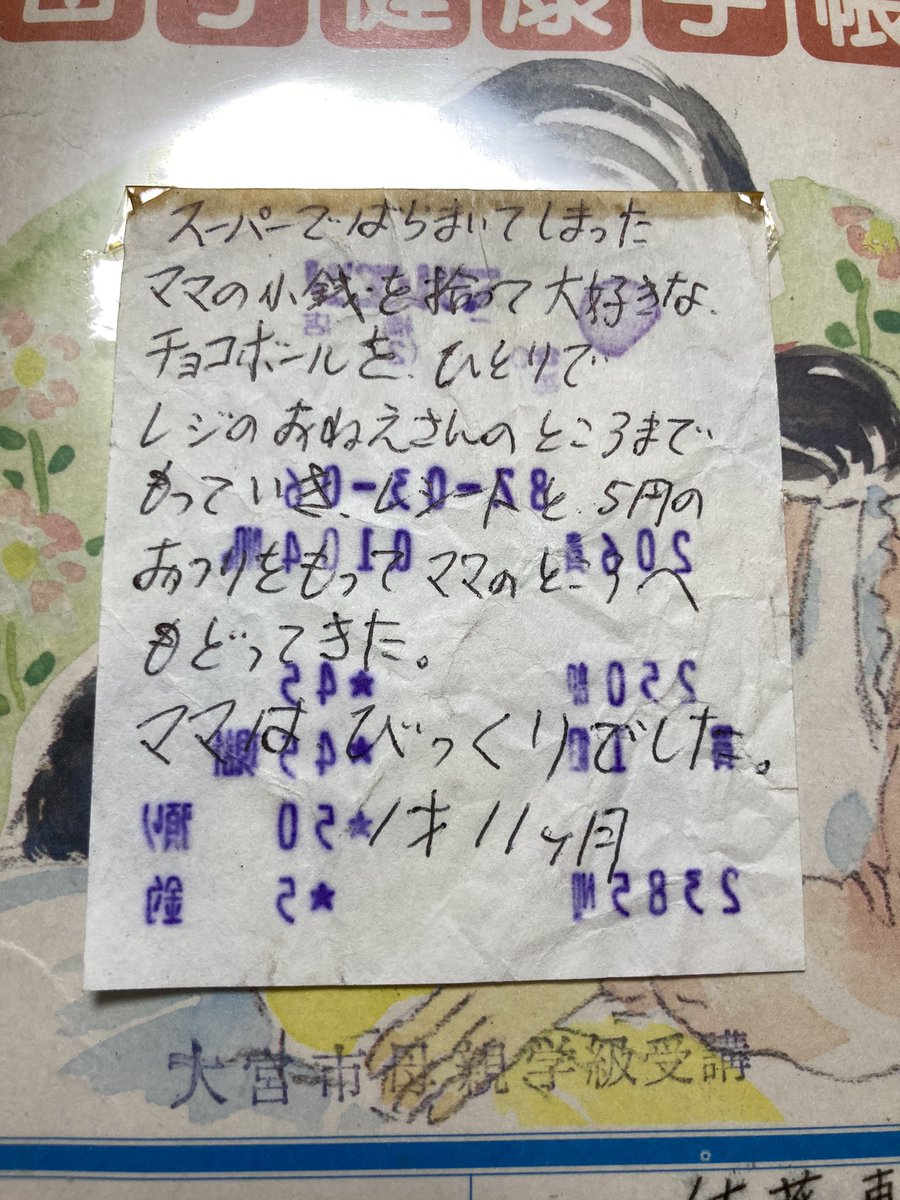 母子健康手帳
スーパーでばらまいてしまった
ママの小銭を拾って大好きな
チョコボールを、ひとりで
レジのおねえさんのところまで
もっていき、レシートと、5円の
おつりをもってママのところへ
もどってきた。
ママはびっくりでした。
1才11ヶ月
82-03-06
206
0104
250
★45
★45
預り ★50
釣 ★5
2385
大宮市母親学級受講